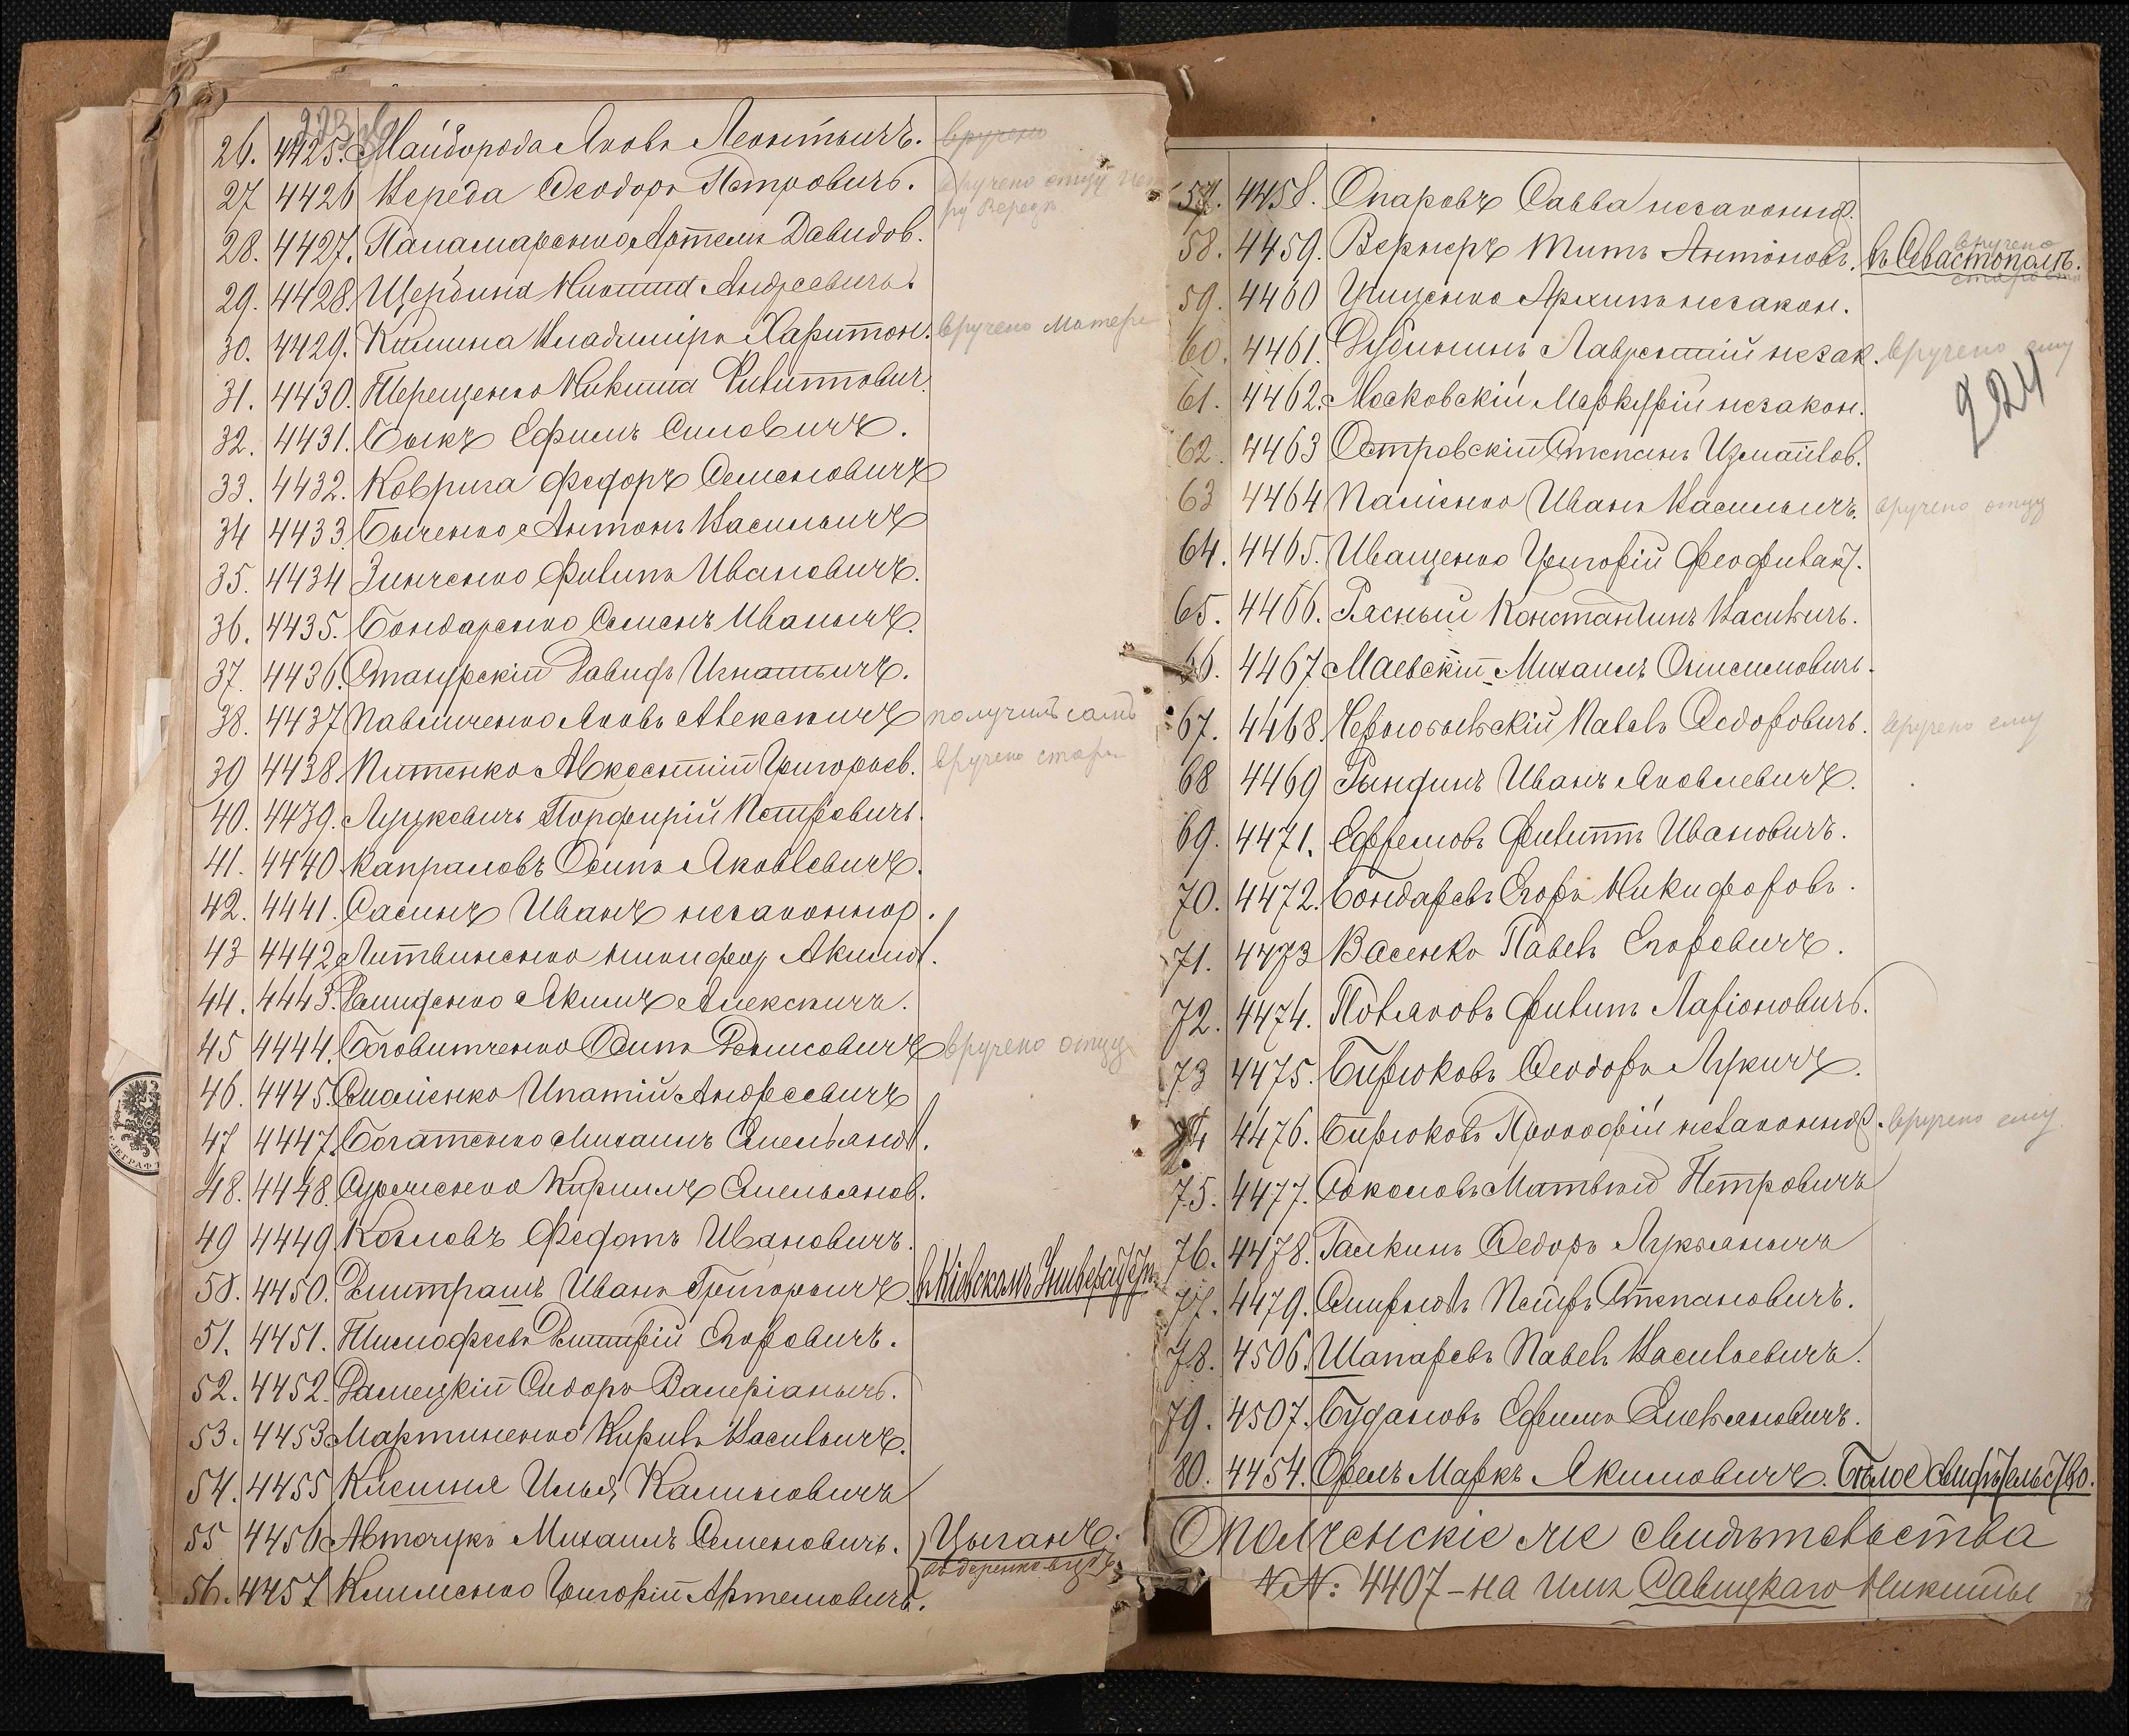 223 об
26. 4425. Майборода Яковъ Леонтьичъ. вручено
27 4426 Вереда Ѳеодоръ Петровичъ. вручено отцу Пет
ру Вереды
28. 4427. Паламаренко Артемъ Давидов.
29. 4428. Щербина Никита Андреевичъ.
30. 4429. Калина Владиміръ Харитон. вручено Матери
31. 4430. Терещенко Никита Филиппович.
32. 4431. Быкъ Ефимъ Силовичъ.
33. 4432. Коврига Федоръ Семеновичъ
34 4433. Быченко Антонъ Васильичъ
35. 4434 Зинченко Филипъ Ивановичъ.
36. 4435. Бондаренко Семенъ Иванычъ.
37. 4436. Стануρскій Давидъ Игнатьичъ.
38. 4437 Павличенко Яковъ Алексѣичъ получилъ самъ
39 4438. Питенко Авксентій Григорьев. вручено стар
40. 4439. Луцкевичъ Порфирій Петровичъ.
41. 4440 Капраловъ Осипъ Яковлевичъ.
42. 4441. Сасинъ Иванъ незаконнор.
43 4442. Литвиненко Никифор Акимов.
44. 4443. Демиденко Акимъ Алексѣичъ.
45 4444. Боговитченко Осипъ Денисовичъ вручено отцу
46. 4445. Симоненко Ипатій Андреевичъ
47 4447. Богатенко Михаилъ Емельянов.
48. 4448. Сурменко Кириллъ Емельянов.
49 4449. Козловъ Федотъ Ивановичъ.
50. 4450. Дмитрашъ Иванъ Григорьичъ въ Кіевскомъ Университетѣ
51. 4451. Тимофеевъ Дмитрій Егоровичъ.
52. 4452. Далецкій Сидоръ Валеріанычъ.
53. 4453 Мартиненко Кирилъ Васильичъ.
54. 4455 Клешня Илья Калиновичъ
55 4456 Авточукъ Михаилъ Семеновичъ. Цыганъ.
56. 4457 Клименко Григорій Артемовичъ.
57. 4458. Опаровъ Савва незаконнор.
58. 4459. Вернеръ Титъ Антоновъ. въ Севастополѣ. вручено
59. 4460 Грищенко Архипъ незакон.
60. 4461. Дубининъ Лаврентій незак. вручено ему
61. 4462. Московскій Меркурій незакон.
224
62. 4463 Островскій Степанъ Измайлов.
63 4464 Паліенко Иванъ Васильичъ. вручено отцу
64. 4465. Иващенко Григорій Феофилакт.
65. 4466. Рясный Константинъ Васильичъ.
66. 4467 Маевскій Михаилъ Онисимовичъ.
67. 4468. Чернобыльскій Павелъ Ѳедоровичъ. вручено ему
68 4469 Рындинъ Иванъ Яковлевичъ.
69. 4471. Ефремовъ Филиппъ Ивановичъ.
70. 4472. Бондаревъ Егоръ Никифоровъ.
71. 4473 Васенко Павелъ Егоревичъ.
72. 4474. Поляковъ Филипъ Ларіоновичъ.
73 4475. Бирюковъ Ѳеодоръ Лукичъ.
74 4476. Бирюковъ Прокофій незаконнор. вручено ему
75. 4477. Соколовъ Матвѣй Петровичъ
76. 4478. Галкинъ Ѳедоръ Лукьянычъ
77. 4479. Смирновъ Петръ Степановичъ.
78. 4506. Шапаревъ Павелъ Васильевичъ.
79. 4507. Будановъ Ефимъ Емельяновичъ.
80. 4454. Орелъ Маркъ Акимовичъ. Бѣлое свидѣтельство.
Ополченскіе же свидѣтельства
№№: 4407 – на имя Савицкаго Никиты